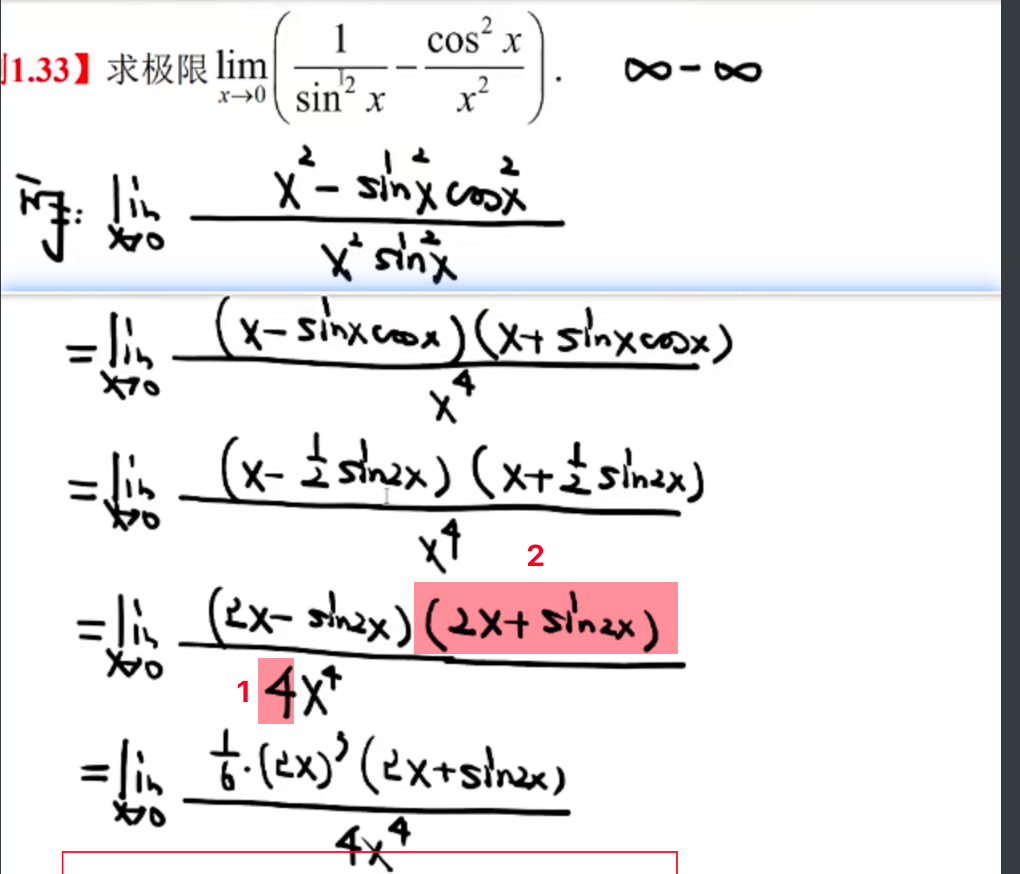 1.33】求极限 lim x→0 ( 1/sin² x − cos² x/x² ). ∞−∞
lim x→0 (x² − sin²x cos²x)/(x² sin²x)
= lim x→0 (x − sinx cosx)(x + sinx cosx)/x⁴
= lim x→0 (x − 1/2 sin2x)(x + 1/2 sin2x)/x⁴
2
= lim x→0 (2x − sin2x)(2x + sin2x)/4x⁴
1
= lim x→0 1/6·(2x)³(2x + sin2x)/4x⁴